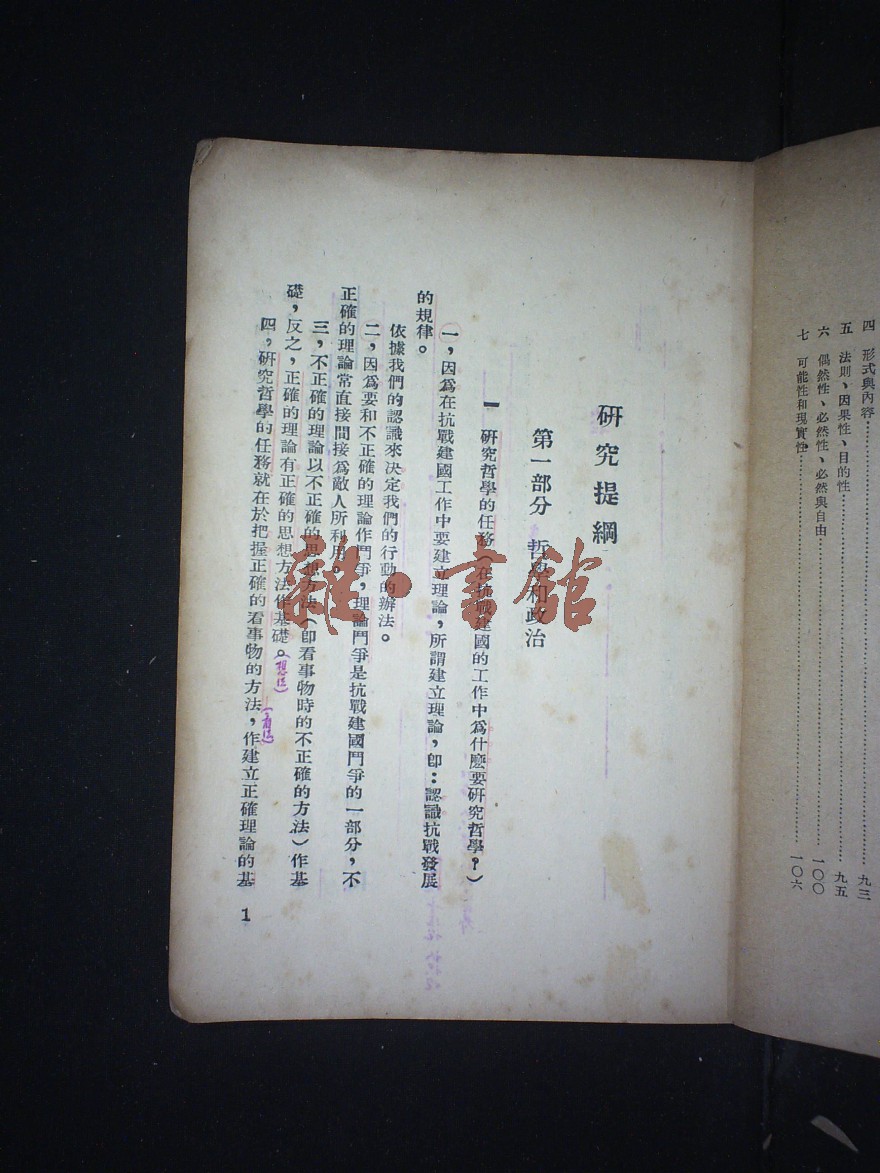 四　形式與內容……九三
五　法則、因果性、目的性……九五
六　偶然性、必然性、必然與自由……一〇〇
七　可能性和現實性……一〇六
研究提綱
第一部分　哲學和政治
一　研究哲學的任務（在抗戰建國的工作中爲什麽要研究哲學？）
一，因爲在抗戰建國工作中要建立理論，所謂建立理論，即：認識抗戰發展
的規律。
依據我們的認識來決定我們的行動的辦法。
二，因爲要和不正確的理論作鬥爭，理論鬥爭是抗戰建國鬥爭的一部分，不
正確的理論常直接間接爲敵人所利用。
三，不正確的理論以不正確的思想方法（即看事物時的不正確的方法）作基
礎，反之，正確的理論有正確的思想方法作基礎。
四，研究哲學的任務就在於把握正確的看事物的方法，作建立正確理論的基
1
雜·書館